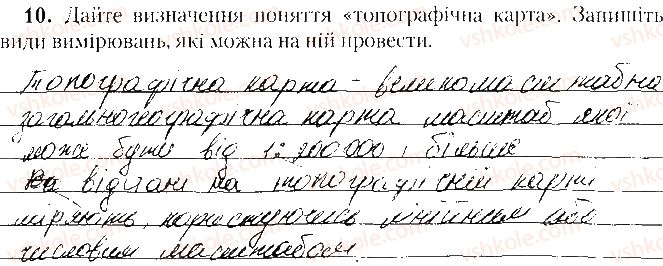 10. Дайте визначення поняття «топографічна карта». Запишіть
види вимірювань, які можна на ній провести.
Топографічна карта - великомасштабна
загальногеографічна карта масштаб якої
може бути від 1:200000 і більше
На відстані на топографічній карті
міряють, користуючись лінійним або
числовим масштабом.